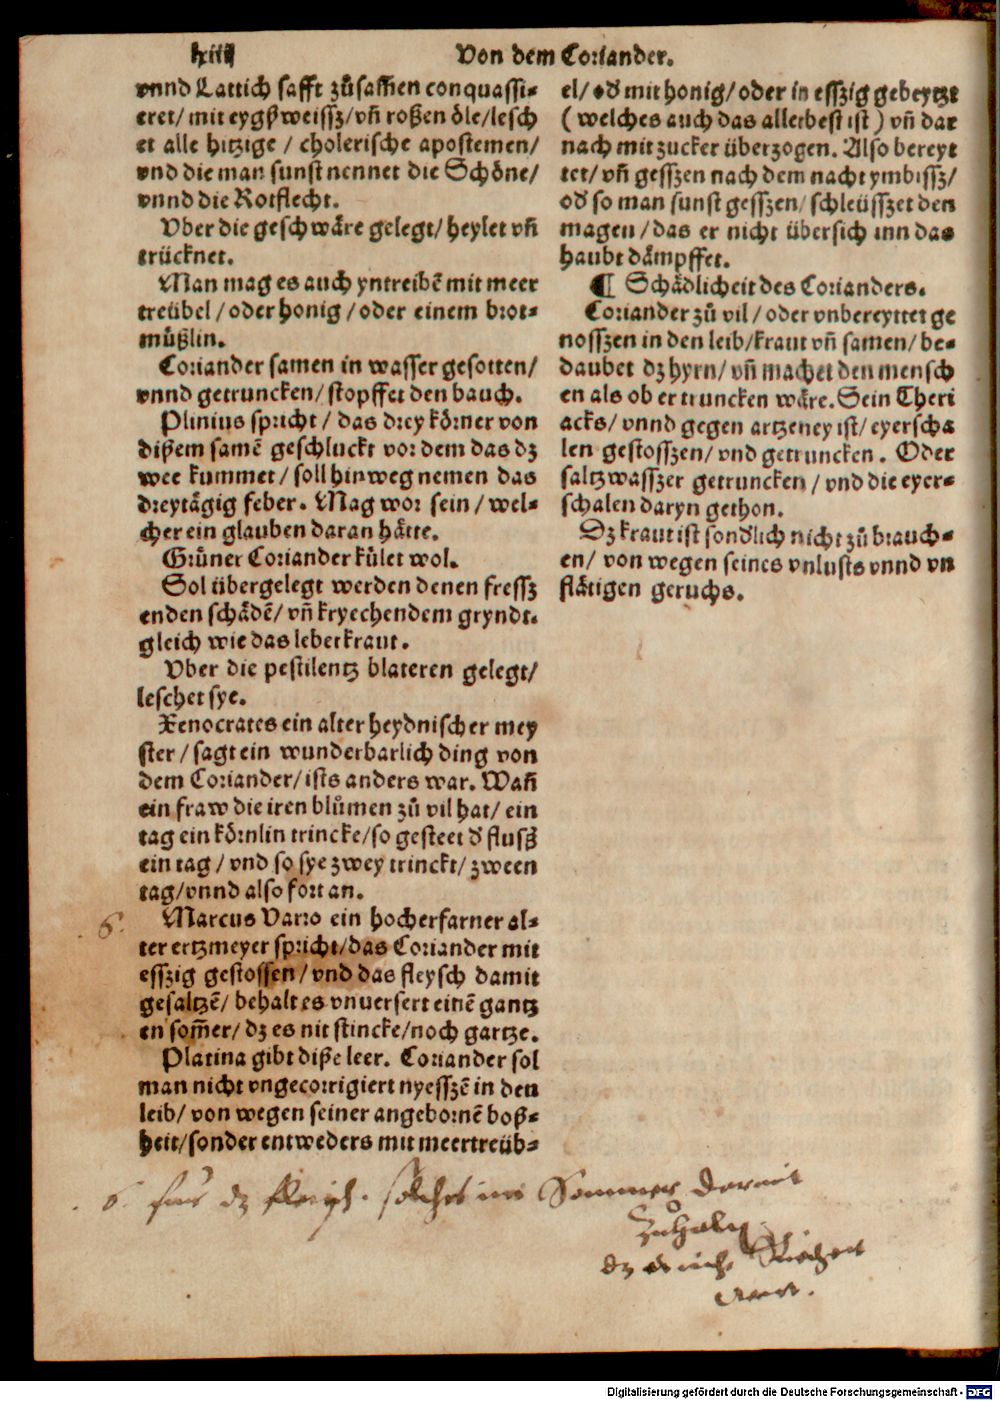 Von dem Coriander.
vnnd Lattich safft zůsam̃en conquassi-
eret/ mit eygßweissz/ vñ roßen öle/ lesch
et alle hitzige / cholerische apostemen/
vnd die man sunst nennet die Schöne/
vnnd die Rotflecht.
Vber die geschwäre gelegt/ heylet vñ
trücknet.
Man mag es auch yntreibẽ mit meer
treübel / oder honig / oder einem brot-
müßlin.
Coriander samen in wasser gesotten/
vnnd getruncken/ stopffet den bauch.
Plinius spricht / das drey körner von
dißem samẽ geschluckt vor dem das dz
wee kummet/ soll hinweg nemen das
dreytägig feber. Mag wor sein / wel-
cher ein glauben daran hätte.
Grůner Coriander kůlet wol.
Sol übergelegt werden denen fressz
enden schädẽ/ vñ kryechendem gryndt.
gleich wie das leberkraut.
Vber die pestilentz blateren gelegt/
leschet sye.
Xenocrates ein alter heydnischer mey
ster / sagt ein wunderbarlich ding von
dem Coriander/ ists anders war. Wañ
ein fraw die iren blůmen zů vil hat/ ein
tag ein körnlin trincke/ so gesteet d' flusß
ein tag / vnd so sye zwey trinckt/ zween
tag/ vnnd also fortan.
6.
Marcus Varro ein hocherfarner al-
ter ertzmeyer spricht/ das Coriander mit
esszig gestossen / vnd das fleysch damit
gesaltzẽ/ behalt es vnuersert einẽ gantz
en som̃er/ dz es nit stincke/ noch gartze.
Platina gibt diße leer. Coriander sol
man nicht vngecorrigiert nyesszẽ in den
leib/ von wegen seiner angebornẽ boß-
heit/ sonder entweders mit meertreüb-
el/ od' mit honig/ oder in esszig gebeytzt
( welches auch das allerbest ist ) vñ dar
nach mit zucker überzogen. Also bereyt
tet/ vñ gesszen nach dem nacht ymbissz/
od' so man sunst gesszen/ schleüsszet den
magen / das er nicht übersich inn das
haubt dämpffet.
¶ Schädlicheit des Corianders.
Coriander zů vil / oder vnbereyttet ge
nosszen in den leib/ kraut vñ samen/ be-
daubet dz hyrn/ vñ machet den mensch
en als ob er truncken wäre. Sein Theri
acks/ vnnd gegen artzeney ist/ eyerscha
len gestosszen/ vnd getruncken. Oder
saltzwasszer getruncken / vnd die eyer-
schalen daryn gethon.
Dz kraut ist sond'lich nicht zů brauch-
en/ von wegen seines vnlusts vnnd vn
flätigen geruchs.
6. für dz fleisch. solches im Sommer darmit
zuhalten
dz es nicht
Digitalisierung gefördert durch die Deutsche Forschungsgemeinschaft - DFG